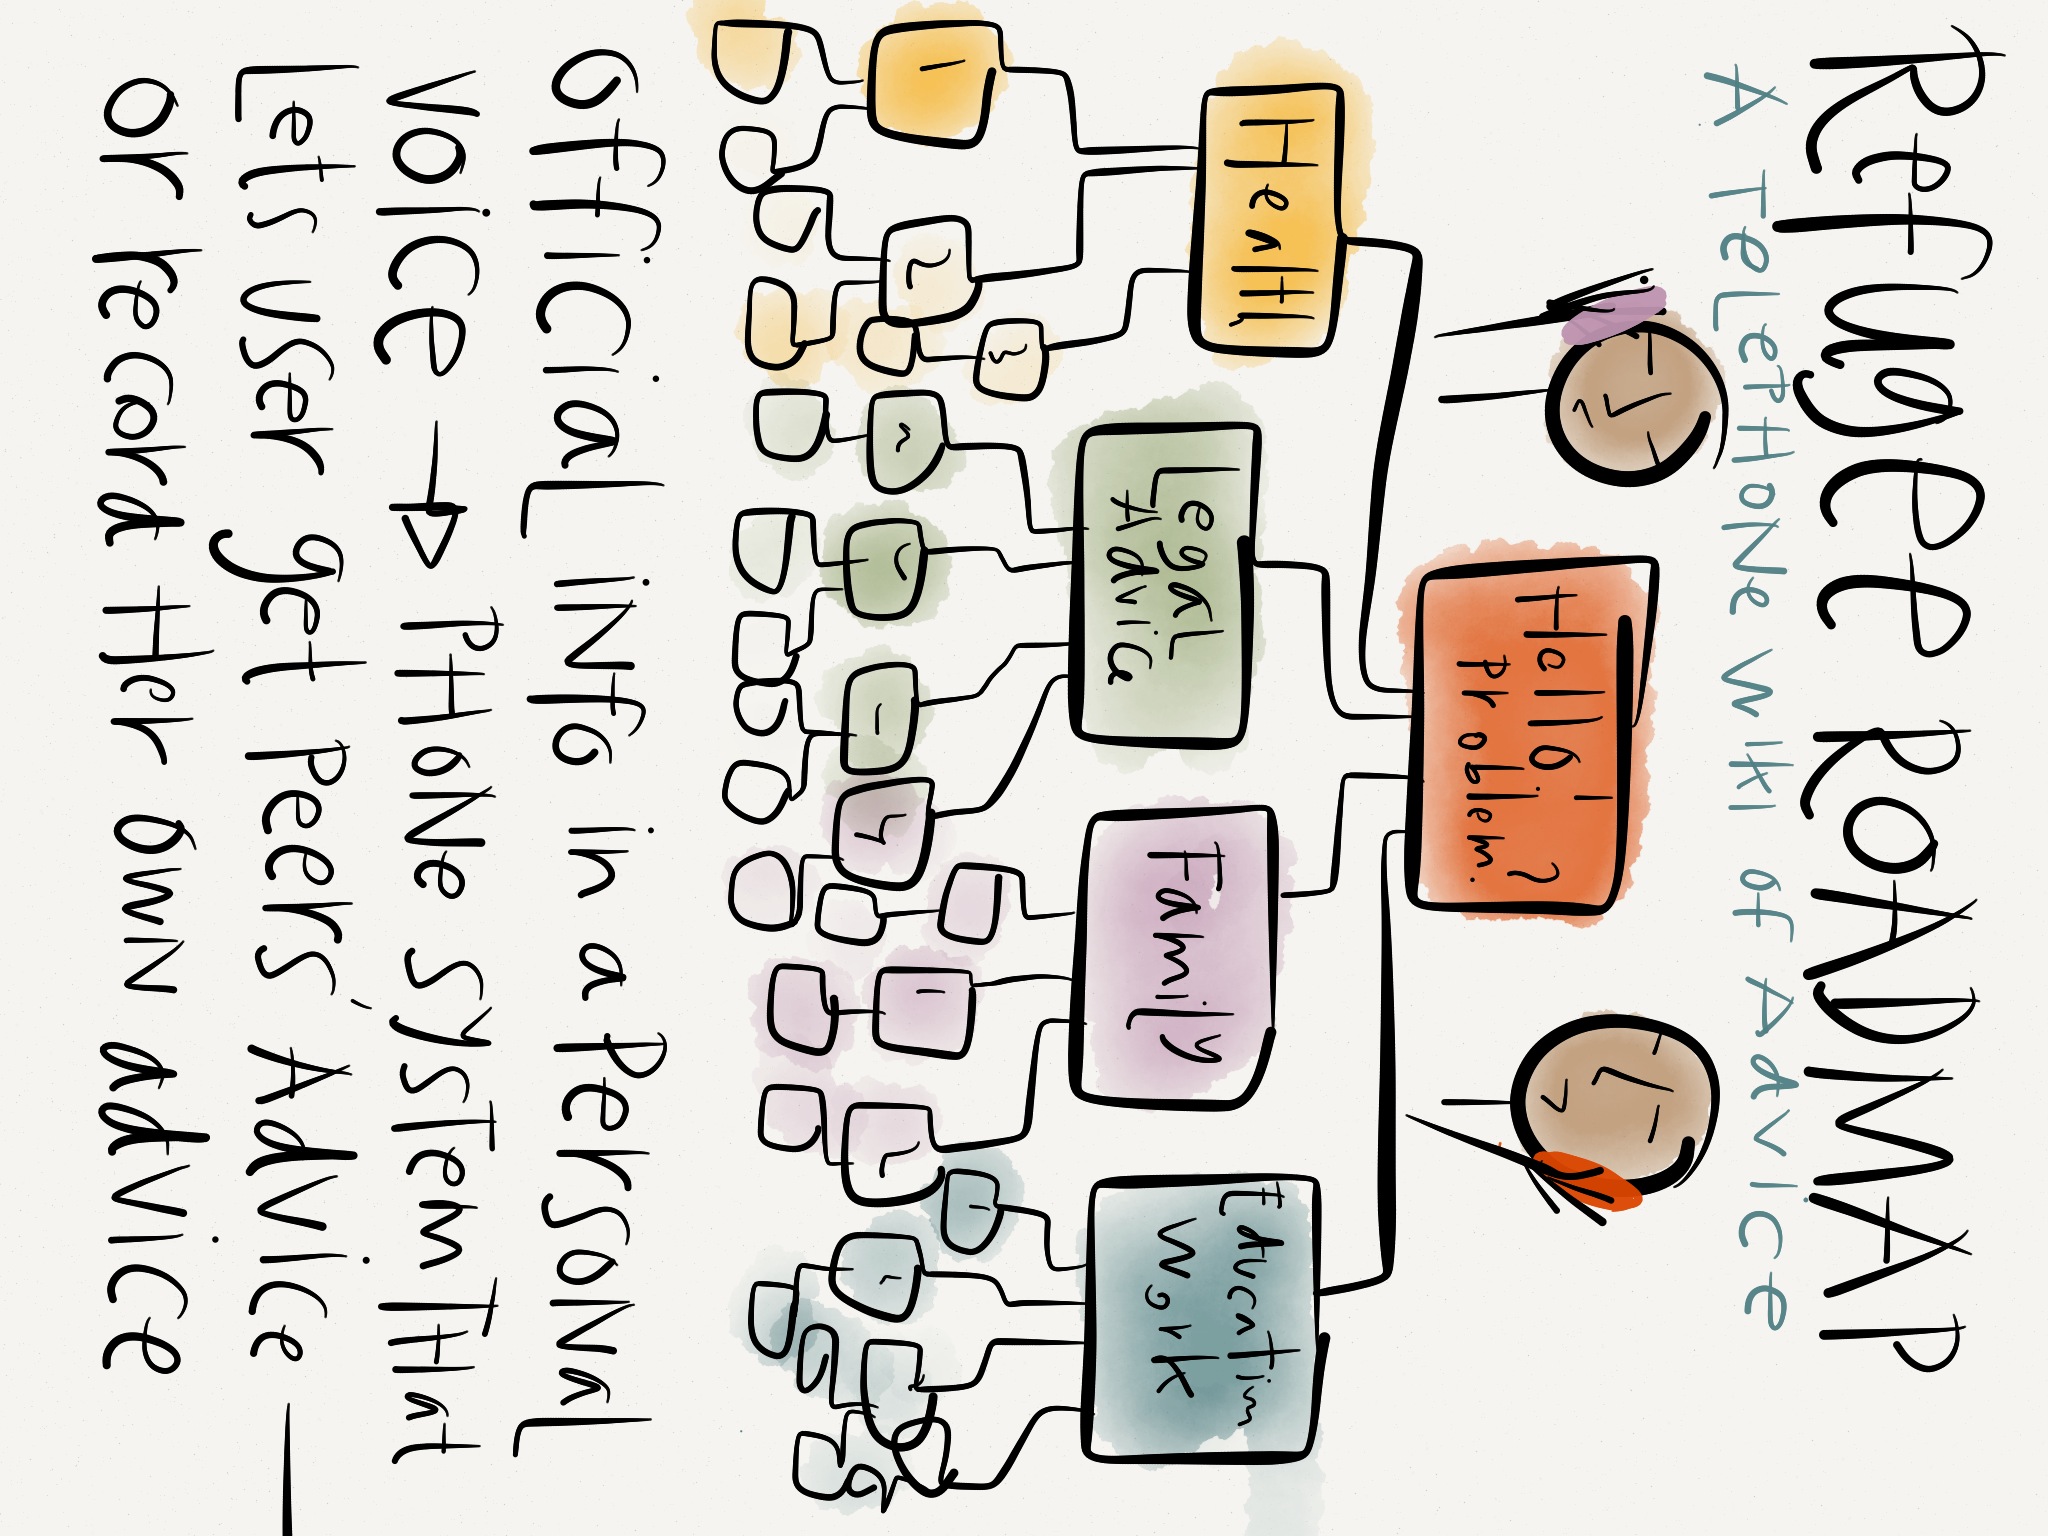 Refugee ROADMAP
A TeLePHONe wiki of Advice
Hello! ?
Problem.
Health
Legal
Advice
Family
Education
Work
1
2
3
1
2
1
2
1
Official iNfo in a PersoNal
voice → PHoNe system THat
Lets user get Peers' Advice —
or record Her own advice